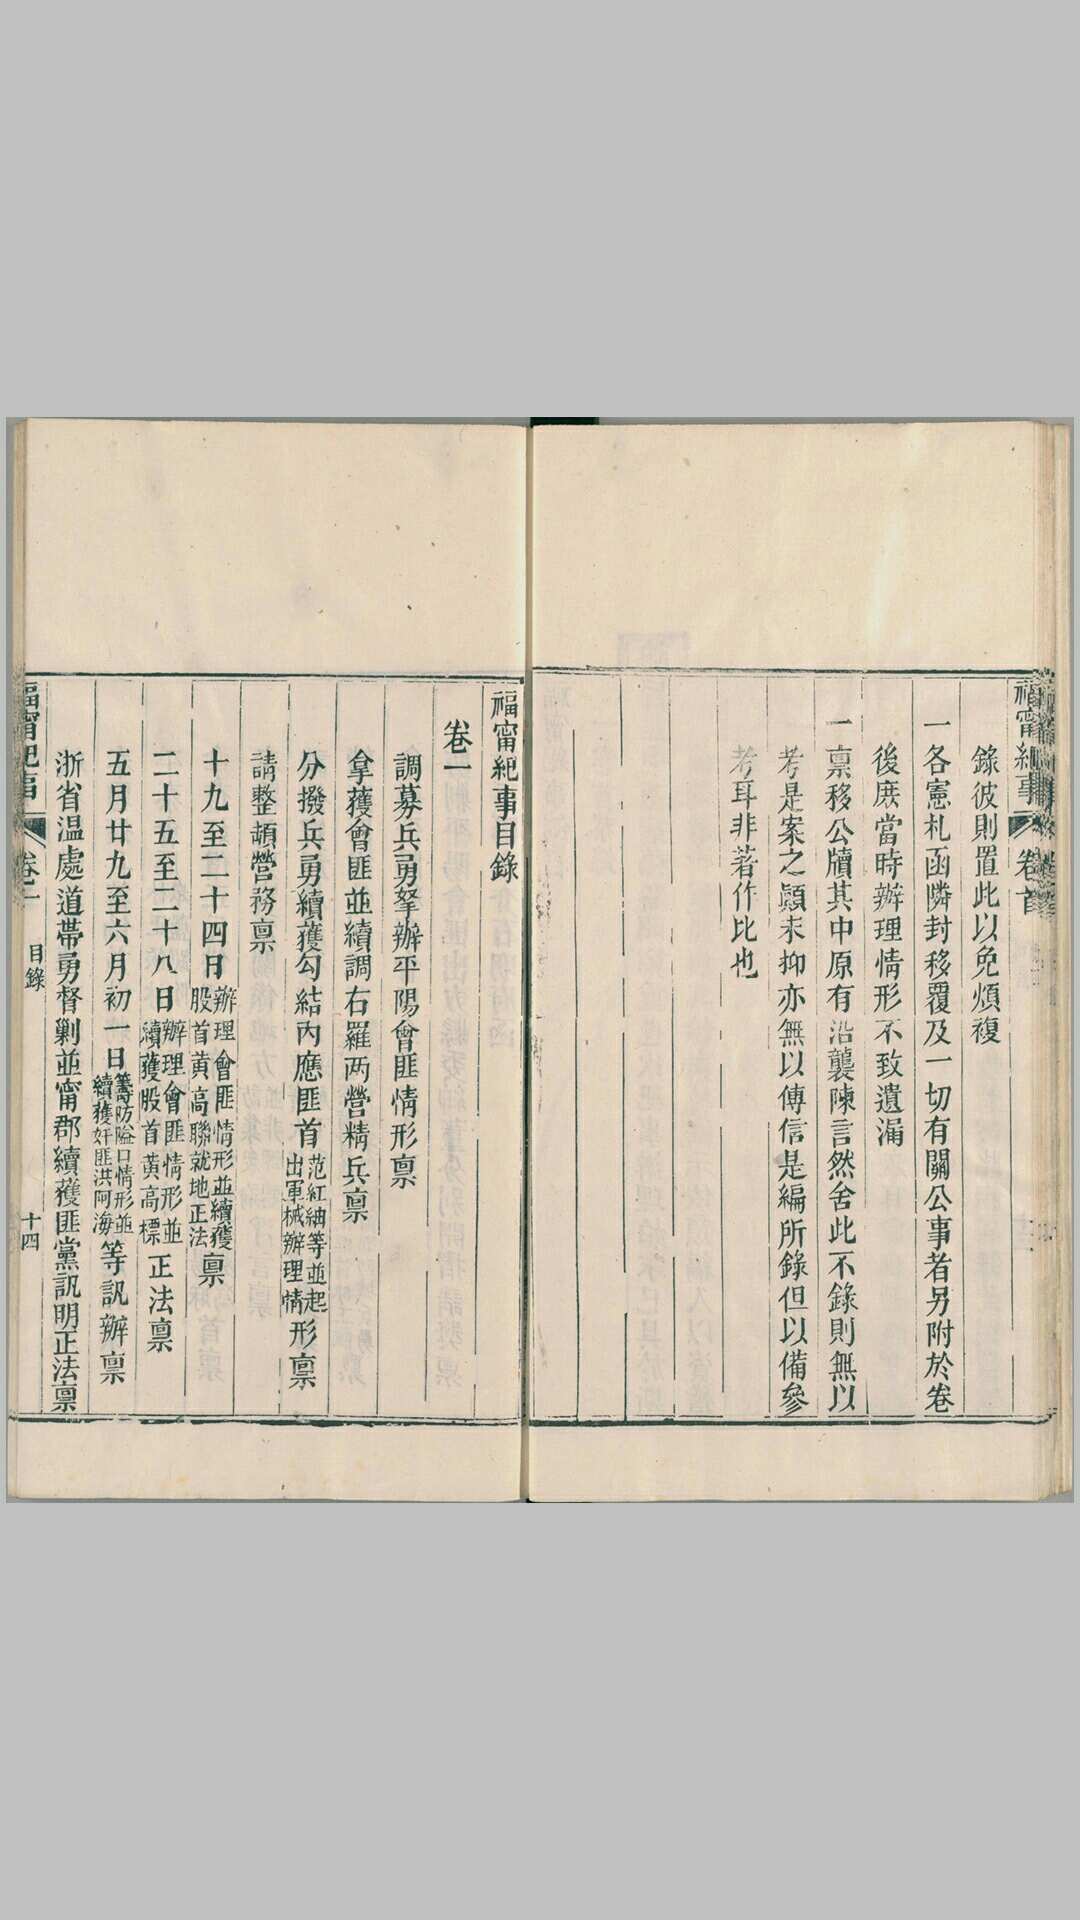 福甯紀事
卷首
錄彼則置此以免煩複
一各憲札函隣封移覆及一切有關公事者另附於卷
後庶當時辦理情形不致遺漏
一稟移公牘其中原有沿襲陳言然舍此不錄則無以
考是案之顚末抑亦無以傳信是編所錄但以備參
考耳非著作比也
福甯紀事目錄
卷一
調募兵勇拏辦平陽會匪情形稟
拿獲會匪並續調右羅两營精兵稟
分撥兵勇續獲勾結內應匪首范紅紬等並起出軍械辦理情形稟
請整頓營務稟
十九至二十四日辦理會匪情形並續獲股首黃高聯就地正法稟
二十五至二十八日辦理會匪情形並續獲股首黃高標正法稟
五月廿九至六月初一日籌防隘口情形並續獲奸匪洪阿海等訊辦稟
浙省温處道帶勇督剿並甯郡續獲匪黨訊明正法稟
福甯紀事
卷一
目錄
十四